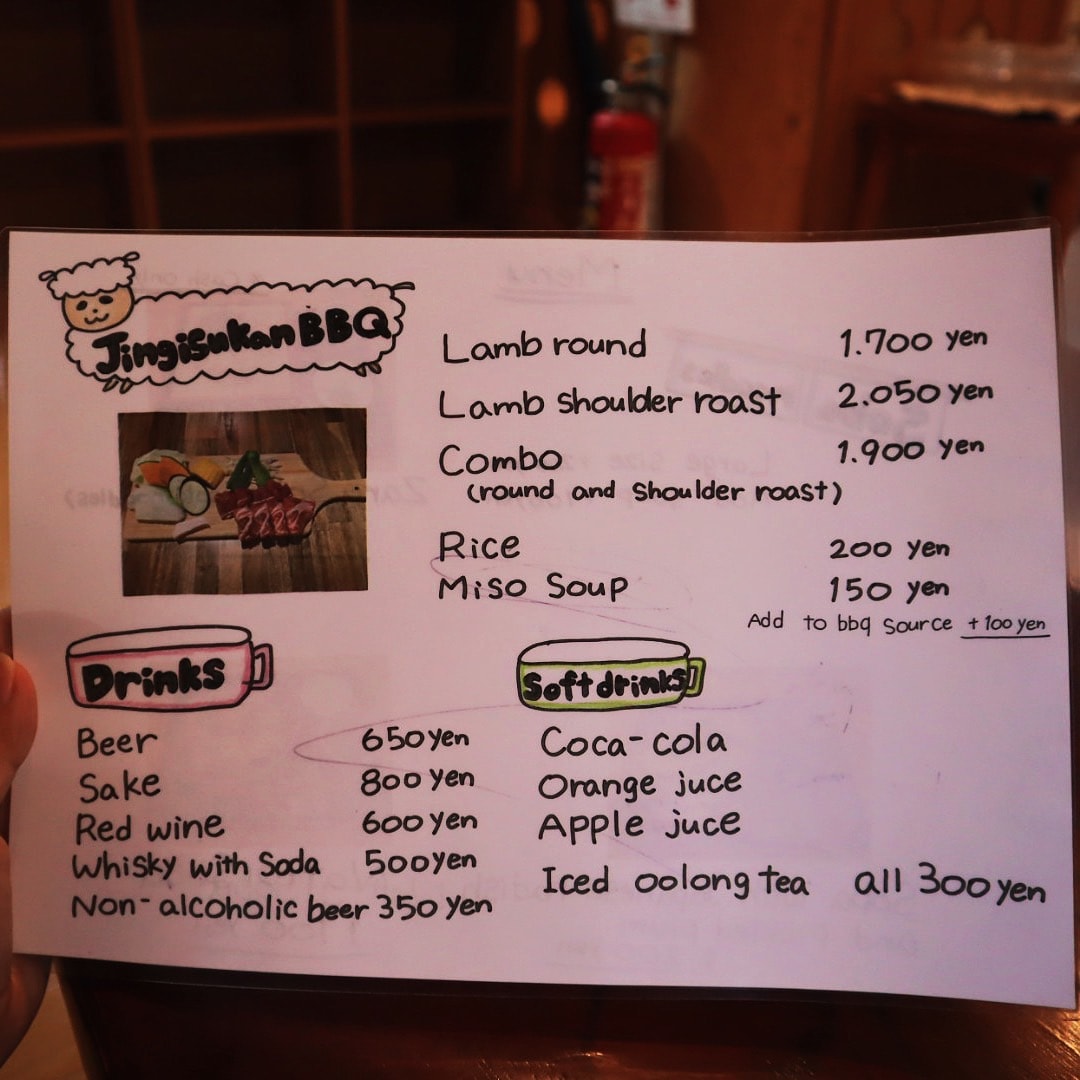 Jingisukan BBQ
Lamb round 1.700 yen
Lamb shoulder roast 2.050 yen
Combo 1.900 yen
(round and shoulder roast)
Rice 200 yen
Miso Soup 150 yen
Add to bbq source +100 yen
Drinks
Beer 650 yen
Sake 800 yen
Red wine 600 yen
Whisky with Soda 500 yen
Non-alcoholic beer 350 yen
Soft drinks
Coca-cola
Orange juce
Apple juce
Iced oolong tea all 300 yen